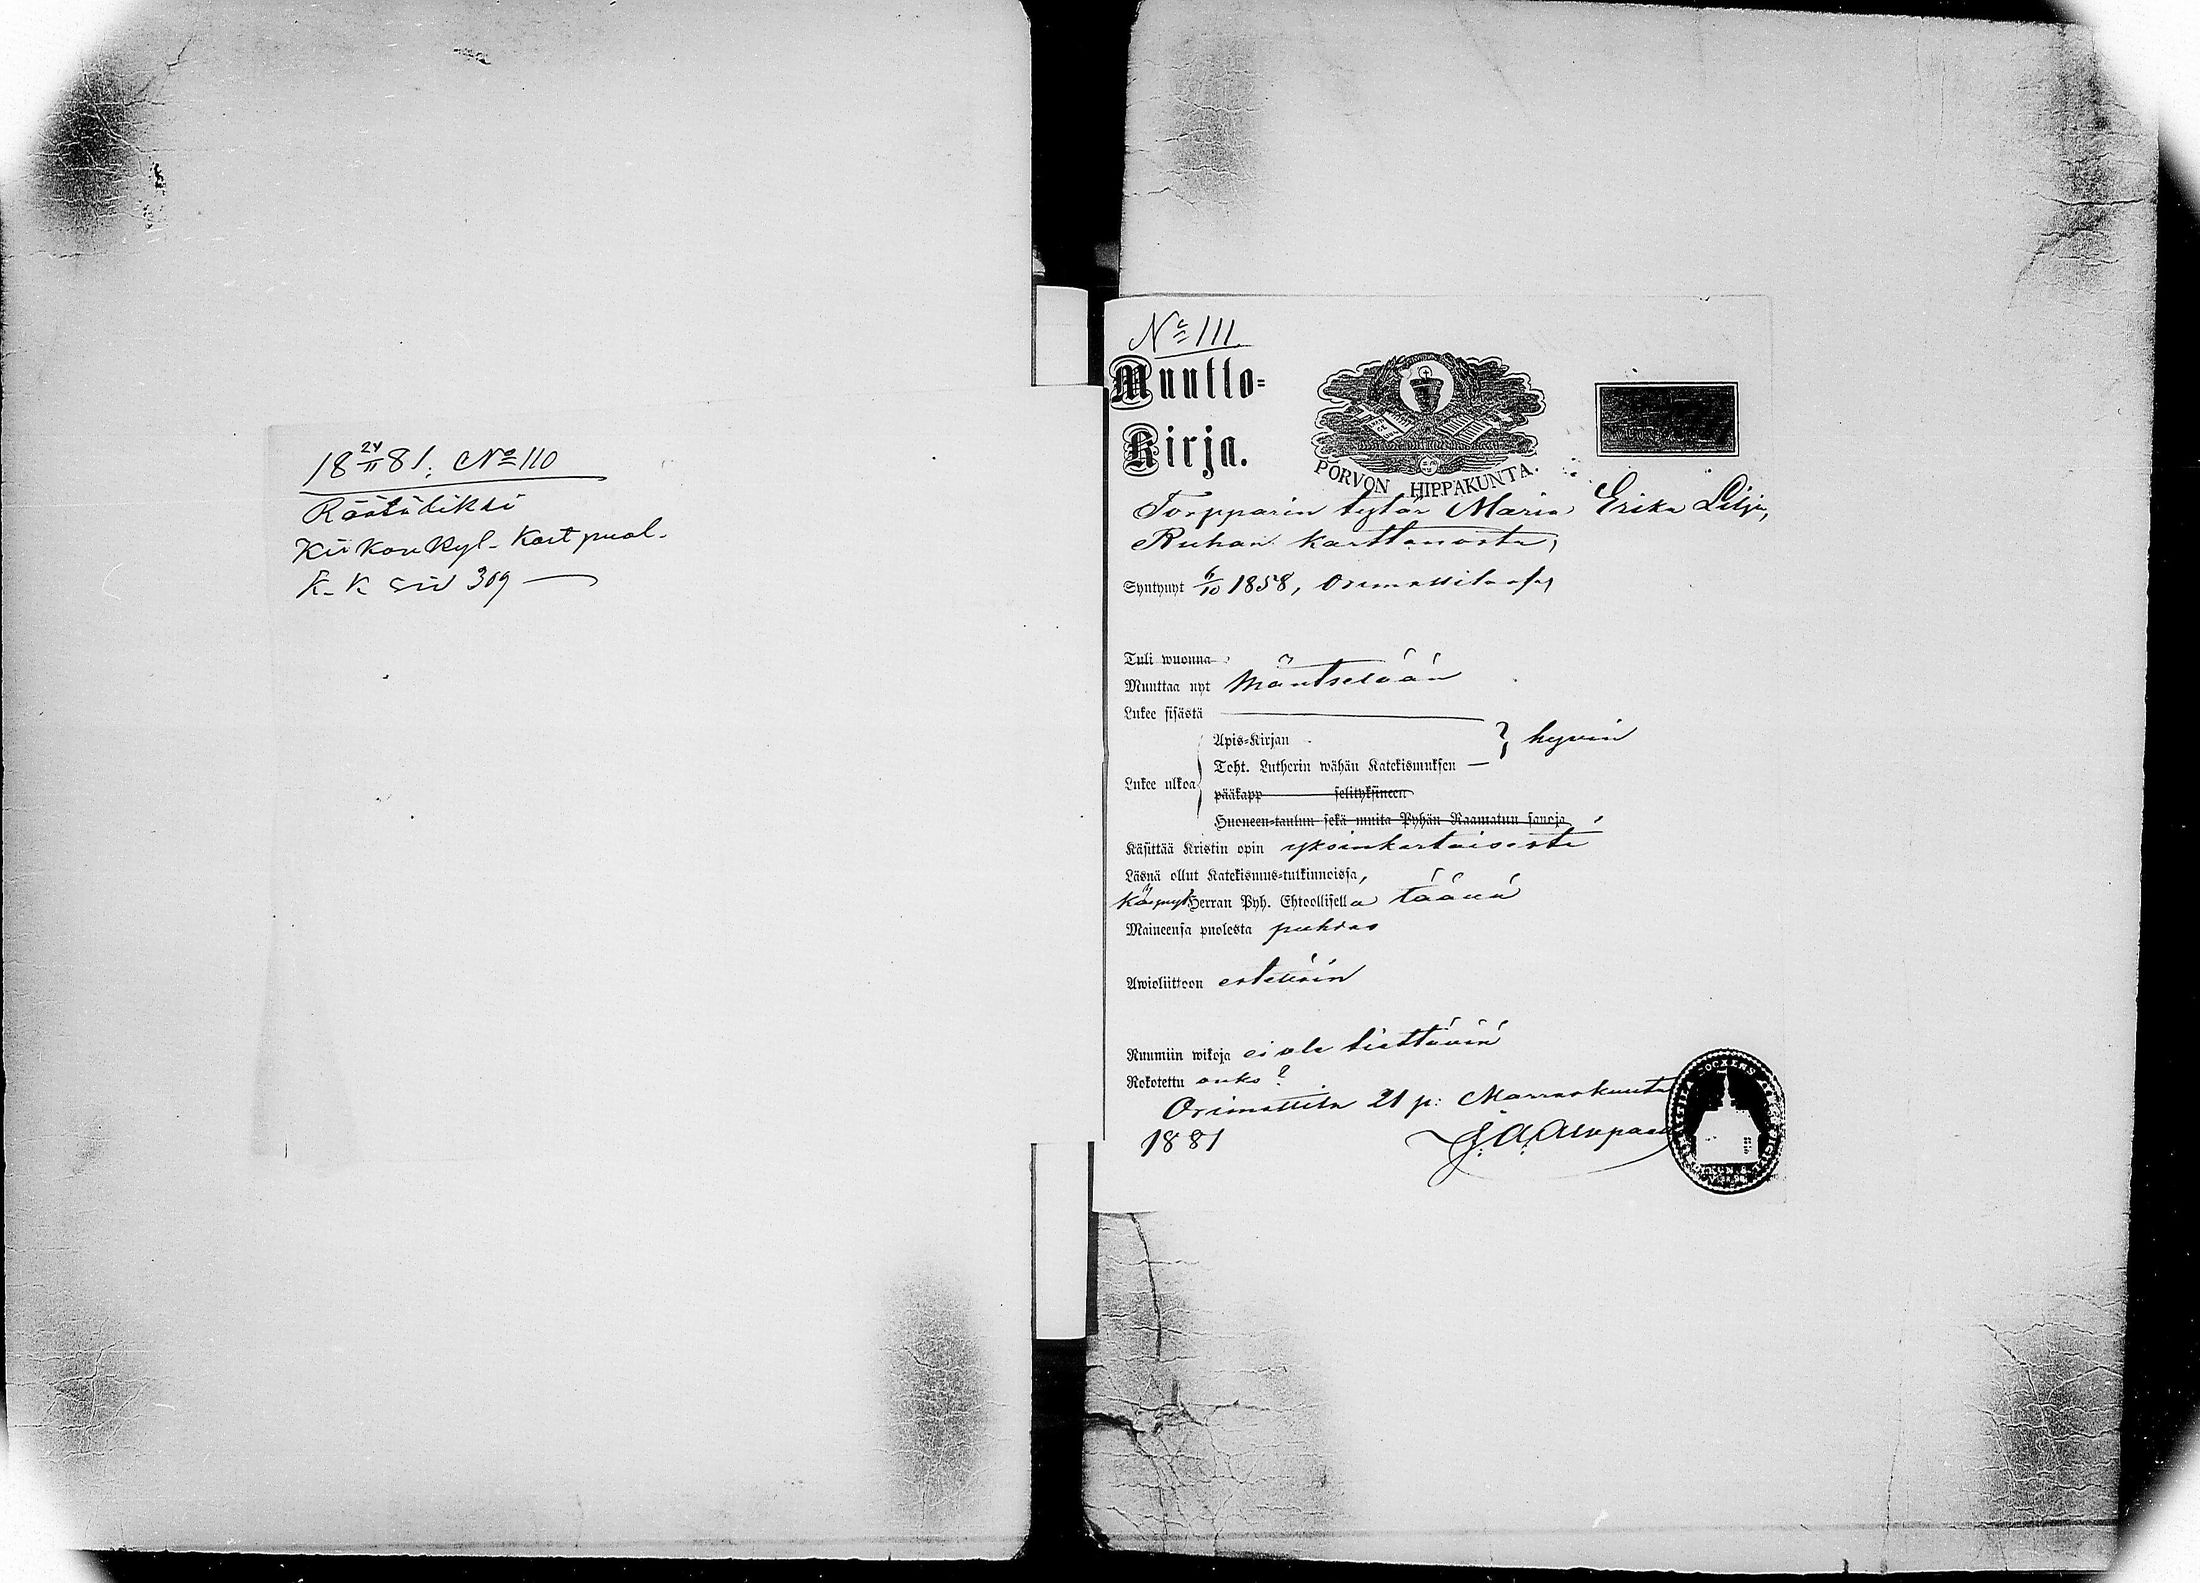 18 24/11 81. No 110
Räätälikki
Kirkonkyl. Kart puol.
K. K. siv 309
No 111.
Muutto-
Kirja.
PORVON HIPPAKUNTA.
Torpparin tytär Maria Erika Lilja,
Ruhan karttanosta,
Syntynyt 6/10 1858, Orimattilassa,
Tuli wuonna
Muuttaa nyt Mäntselään
Lukee sisästä
Apis-Kirjan } hywin
Toht. Lutherin wähän Katekismuksen
Lukee ulkoa
pääkapp selityksineen
Huoneen-taulun sekä muita Pyhän Raamatun sanoja
Käsittää Kristin opin yksinkertaisesti
Läsnä ollut Katekismus-tulkinnoissa,
Käynyt Herran Pyh. Ehtoollisella täänä
Maineensa puolesta puhdas
Awioliittoon esteetöin
Ruumiin wikoja ei ole tiettäviä
Rokotettu onko?
Orimattila 21 p: Marraskuuta
1881